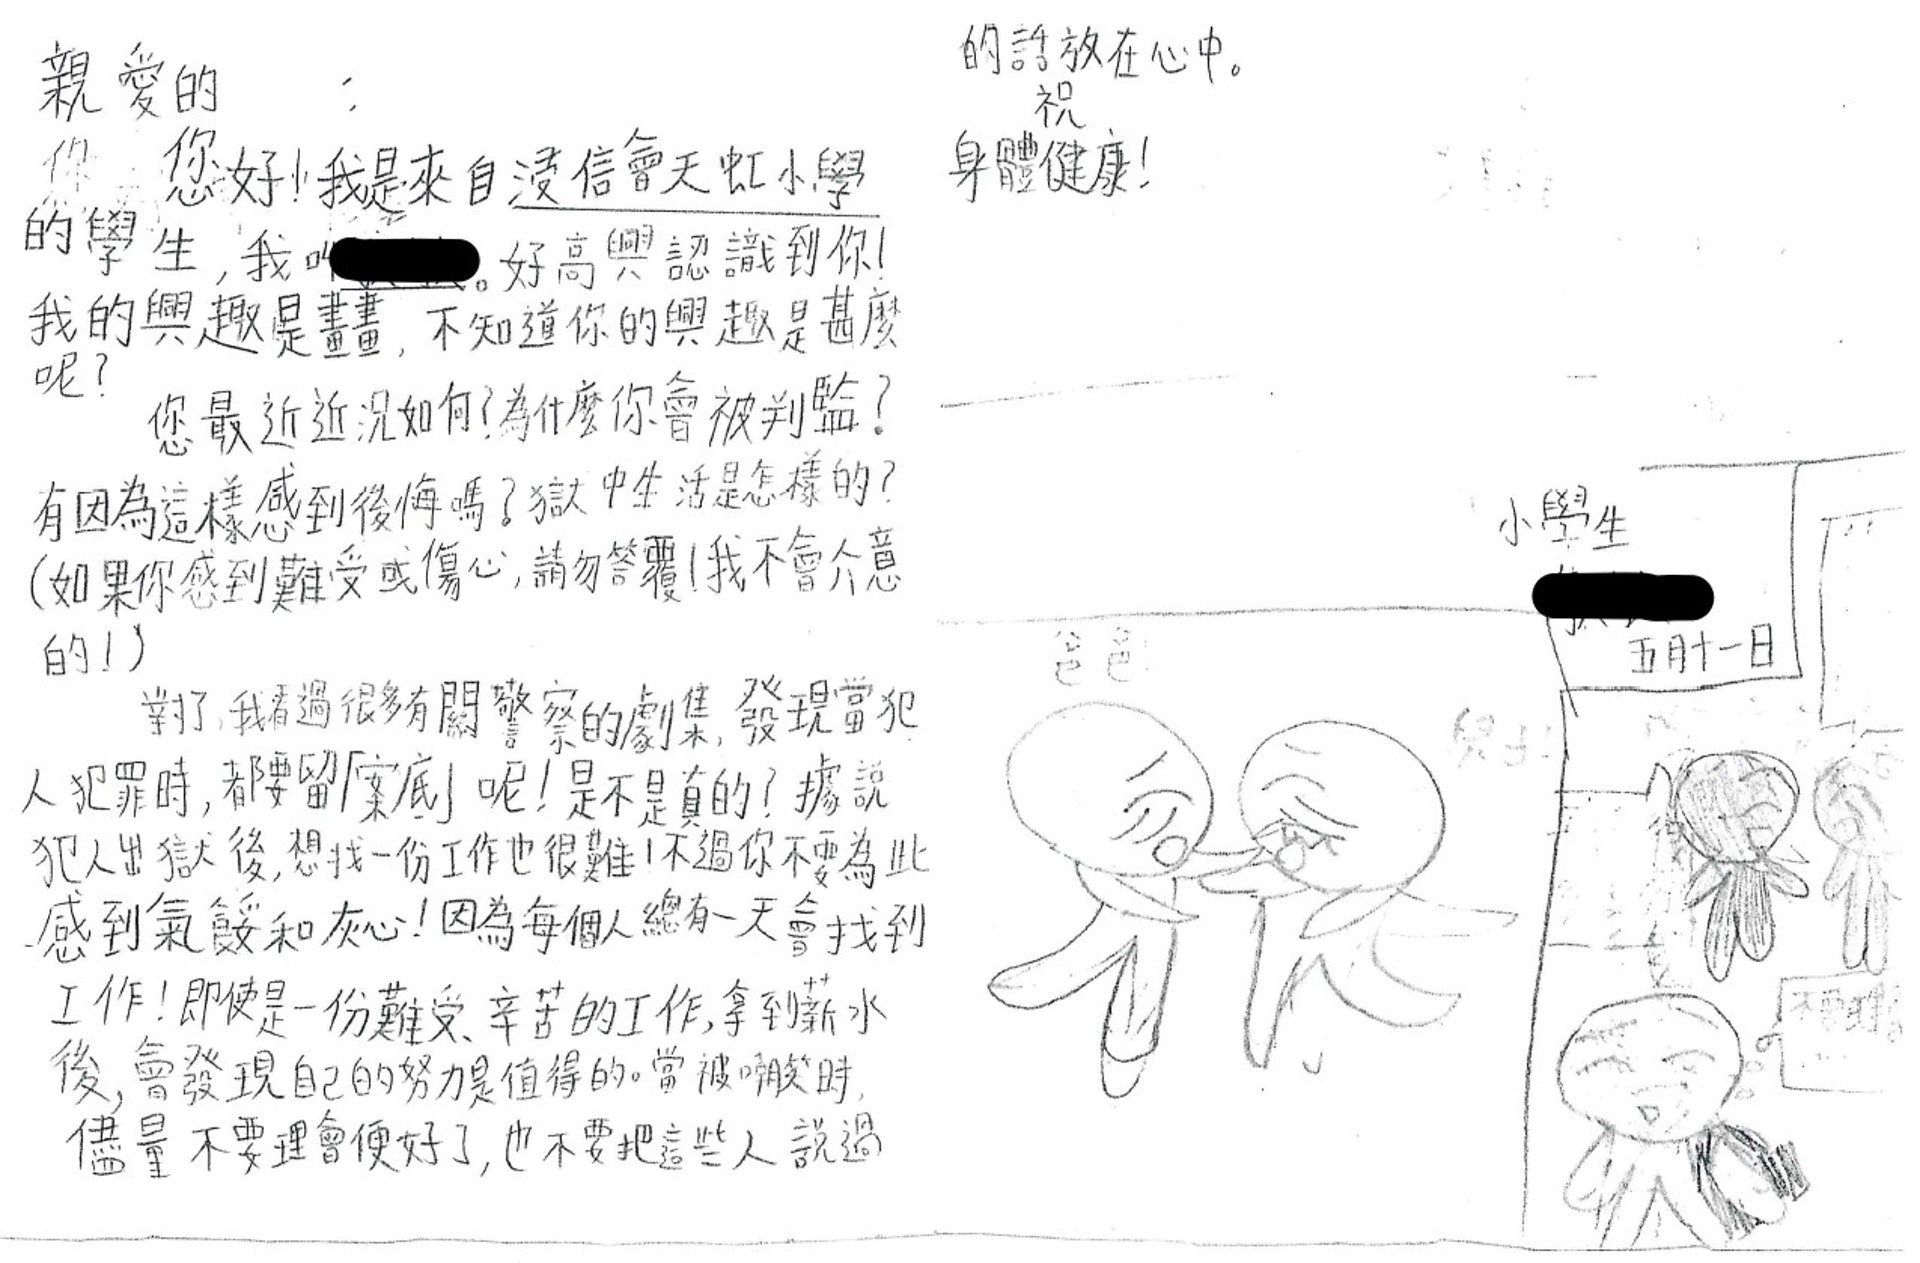 親愛的　　：
您好!我是來自浸信會天虹小學
的學生,我叫　　。好高興認識到你!
我的興趣是畫畫,不知道你的興趣是甚麼
呢?
您最近近況如何?為什麼你會被判監?
有因為這樣感到後悔嗎?獄中生活是怎樣的?
(如果你感到難受或傷心,請勿答覆!我不會介意
的!)
對了,我看過很多有關警察的劇集,發現當犯
人犯罪時,都要留「案底」呢!是不是真的?據說
犯人出獄後,想找一份工作也很難!不過你不要為此
感到氣餒和灰心!因為每個人總有一天會找到
工作!即使是一份難受、辛苦的工作,拿到薪水
後,會發現自己的努力是值得的。當被嘲笑時,
儘量不要理會便好了,也不要把這些人說過
的話放在心中。
祝
身體健康!
小學生
五月十一日
爸爸
不要理